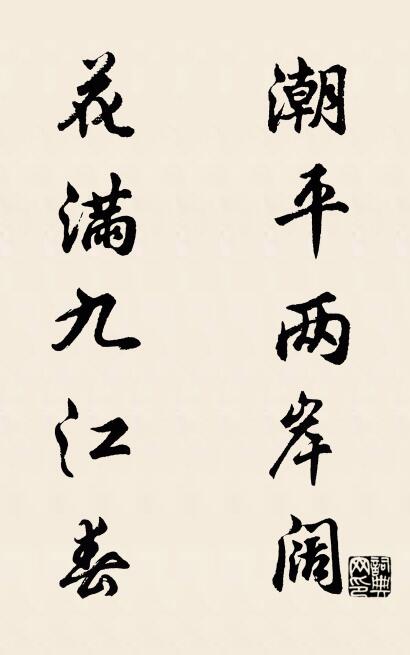 潮平两岸阔
花满九江春
詞典网印